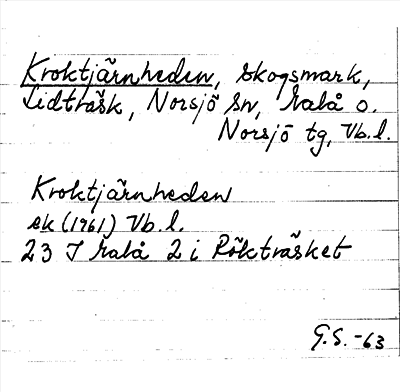 Kroktjärnheden, skogsmark,
Lidträsk, Norsjö sn, Malå o.
Norsjö tg, Vb.l.
Kroktjärnheden
ek (1961) Vb.l.
23 J Malå 2 i Rökträsket
G.S. -63